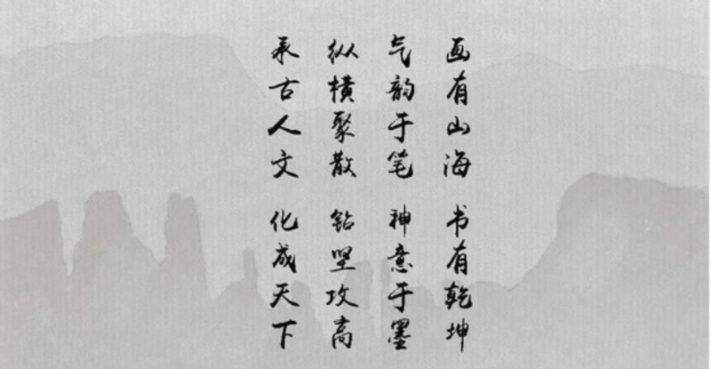 画有山海 书有乾坤
气韵于笔 神意于墨
纵横聚散 钻坚攻高
承古人文 化成天下